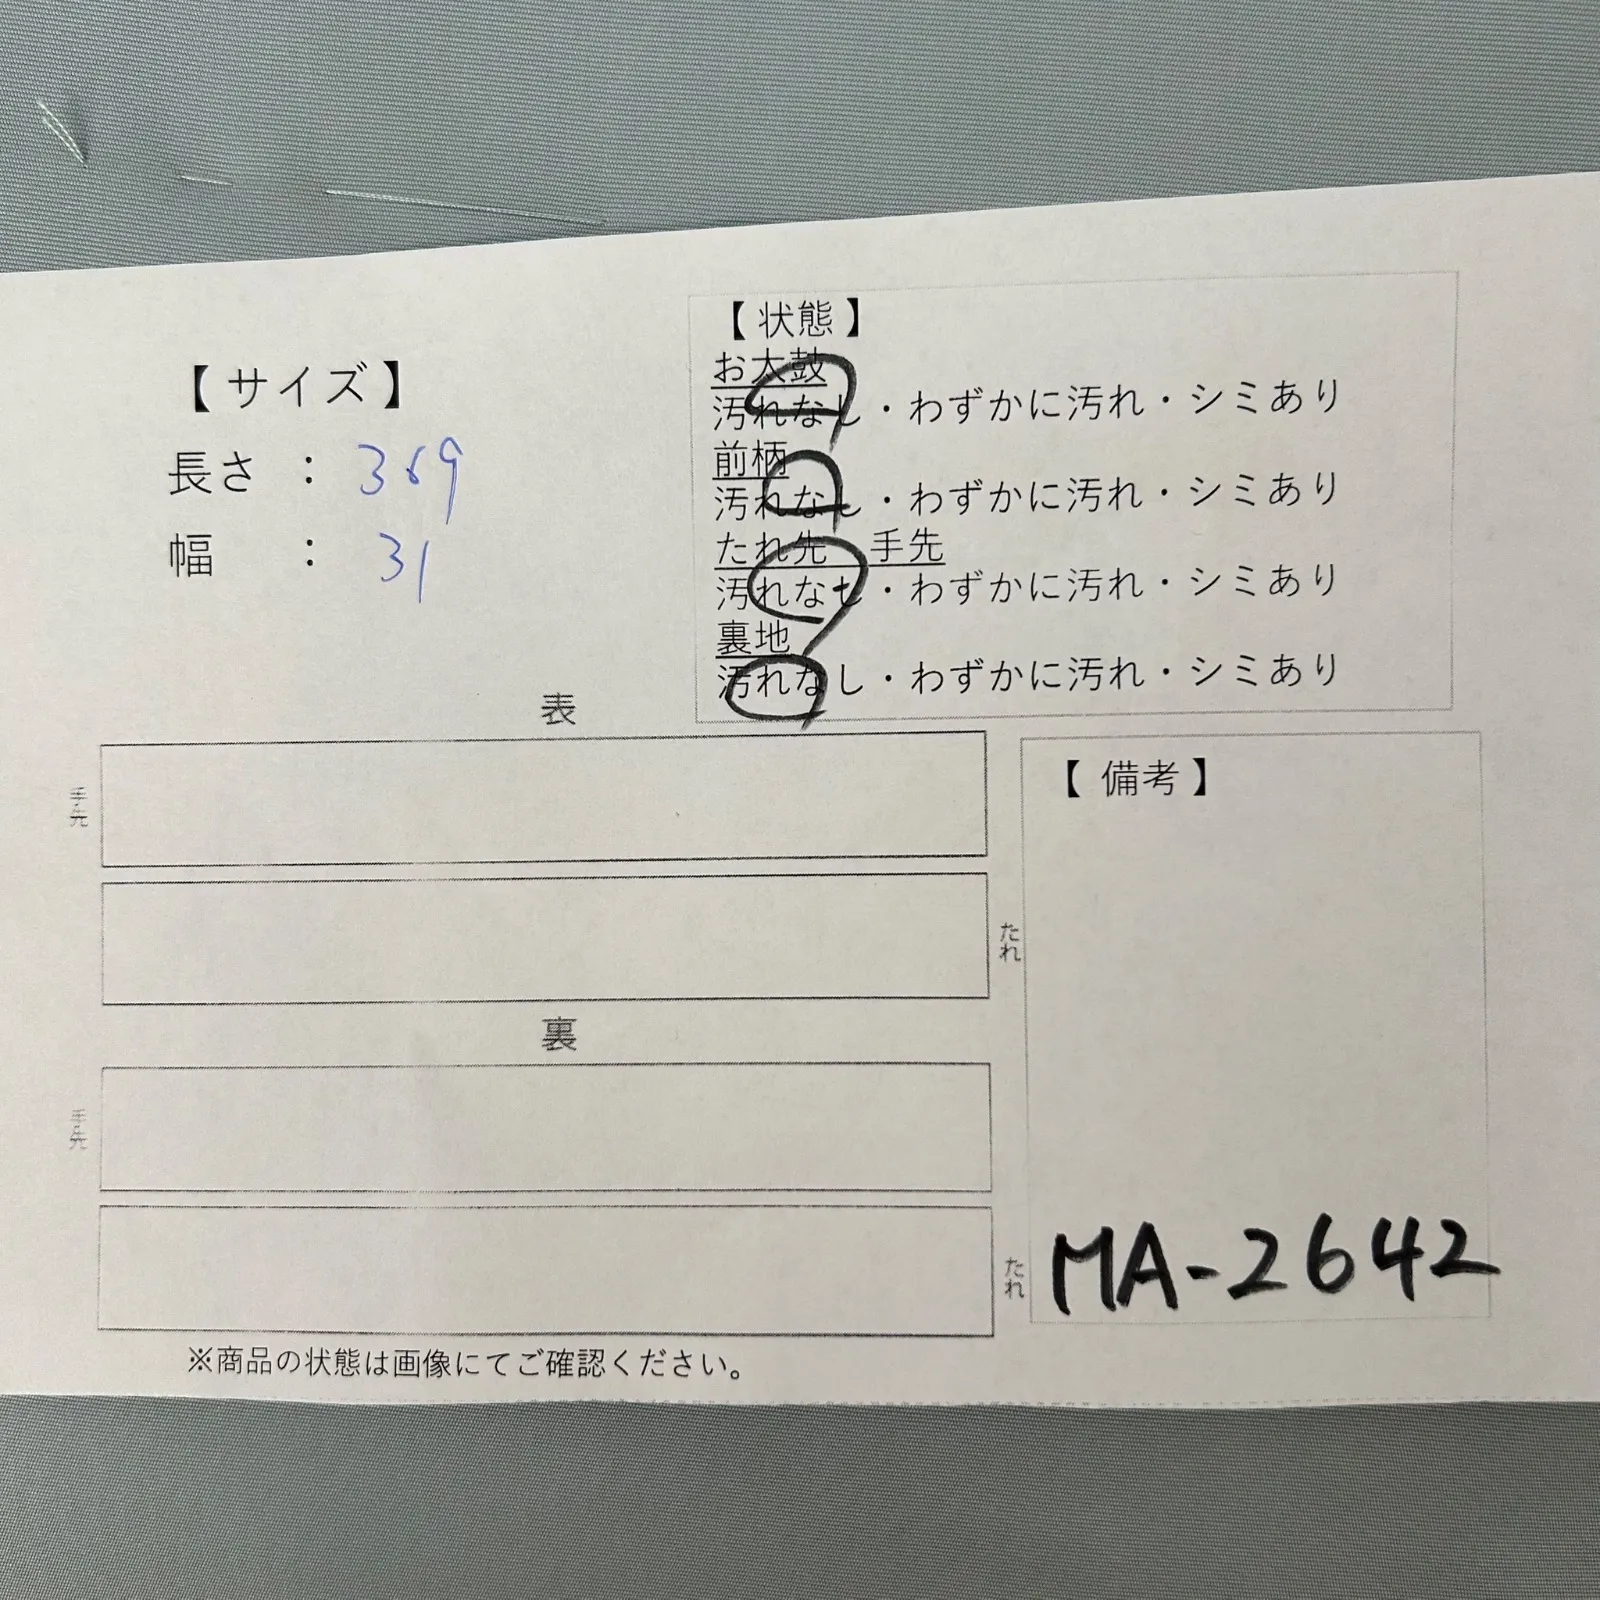 【サイズ】
長さ：369
幅：31
【状態】
お太鼓
汚れなし・わずかに汚れ・シミあり
前柄
汚れなし・わずかに汚れ・シミあり
たれ先 手先
汚れなし・わずかに汚れ・シミあり
裏地
汚れなし・わずかに汚れ・シミあり
表
手先
たれ
裏
手先
たれ
【備考】
MA-2642
※商品の状態は画像にてご確認ください。